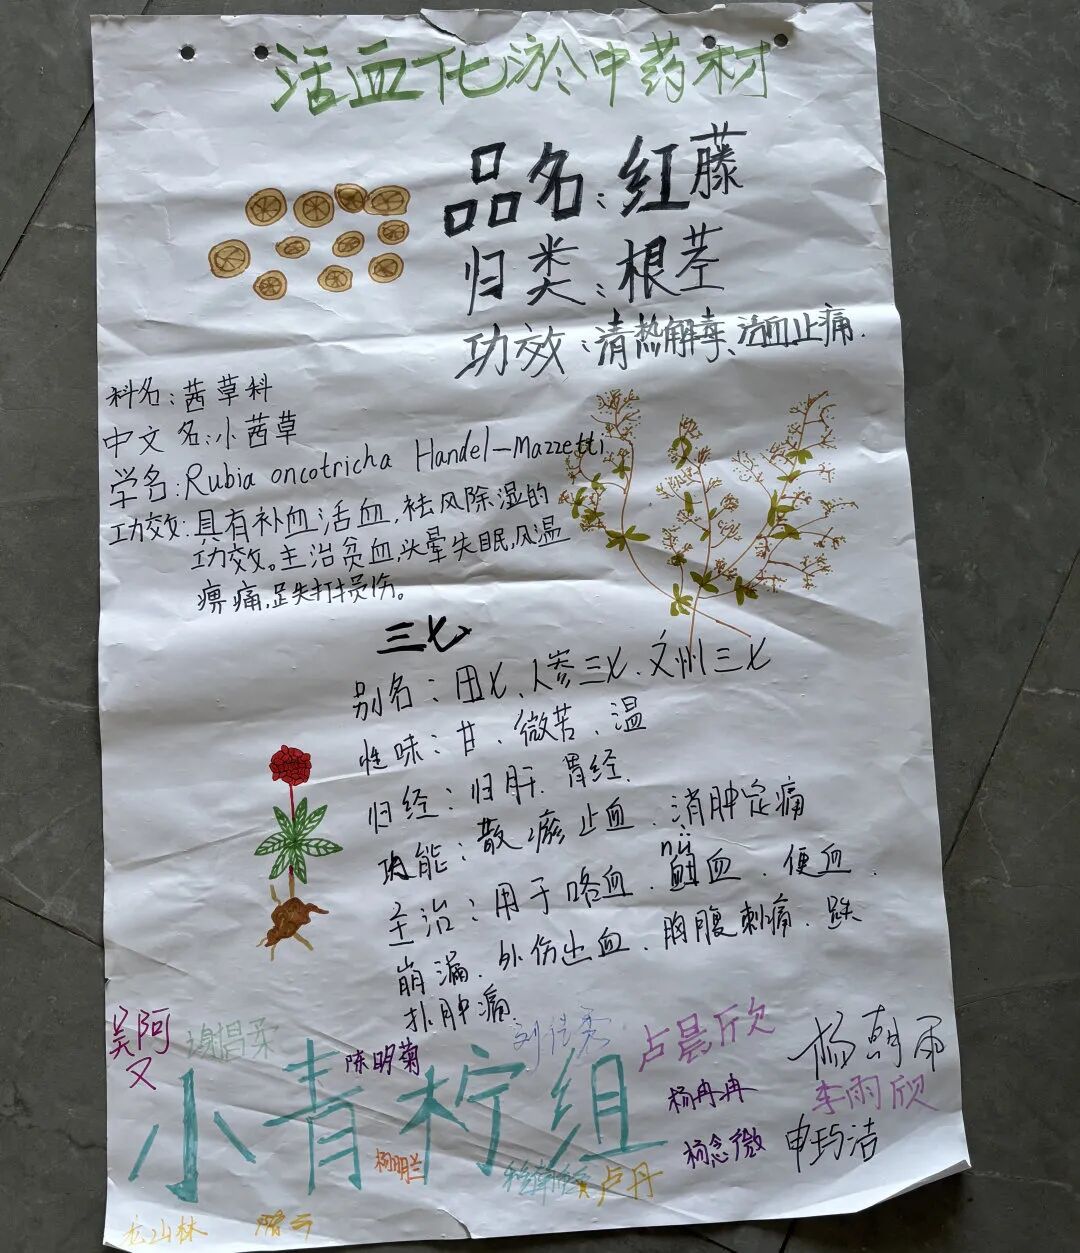 活血化淤中药材
品名：红藤
归类：根茎
功效：清热解毒、活血止痛.
科名：茜草科
中文名：小茜草
学名：Rubia oncotricha Handel-Mazzetti
功效：具有补血活血，祛风除湿的
功效。主治贫血，头晕失眠，风湿
痹痛，跌打损伤。
三七
别名：田七、人参三七、文州三七
性味：甘、微苦、温
归经：归肝、胃经.
功能：散瘀止血、消肿定痛
nǜ
主治：用于咯血、衄血、便血、
崩漏、外伤出血、胸腹刺痛、跌
扑肿痛.
吴阿
又
陈明菊
卢晨欣
杨朝雨
杨冉冉
李雨欣
小青柠组
杨明兰
杨念微
卢丹
龙山林